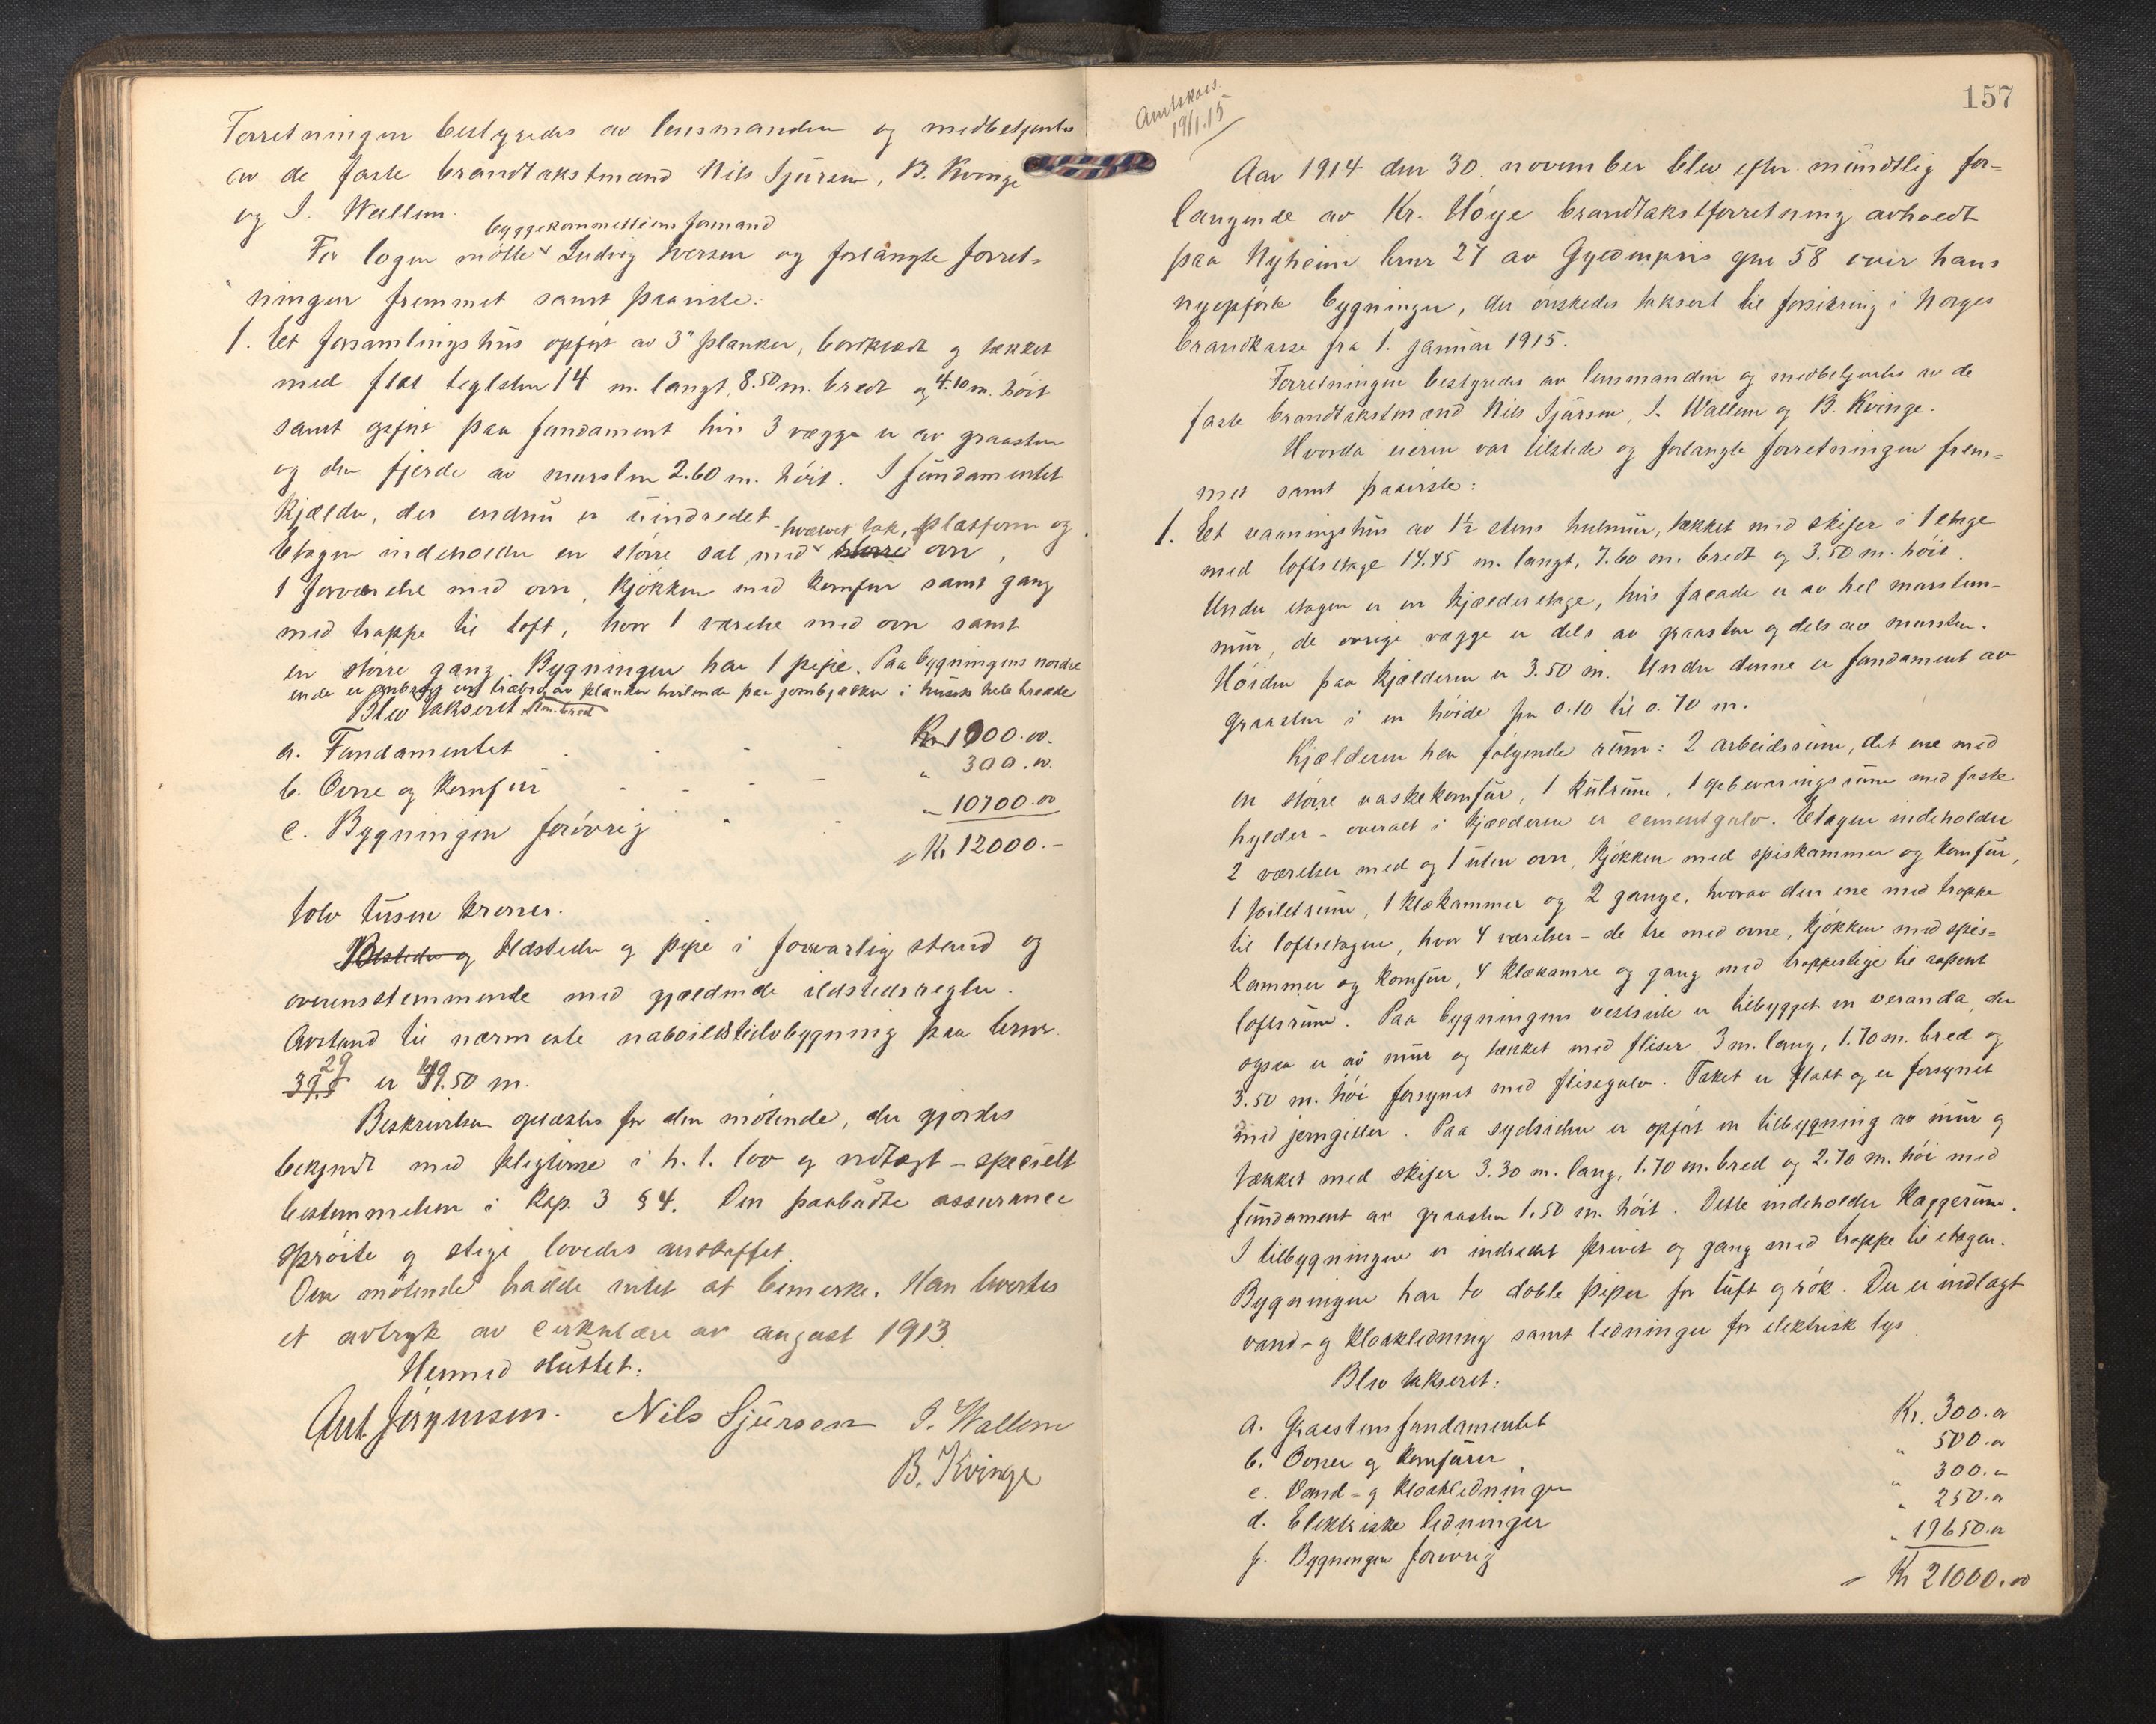 Forretningen bestyredes av lensmanden og medbetjentes
av de faste brandtakstmænd Nils Sjursen, B. Kvinge
og I. Wallem.
byggekommitteens formand
For logen mötte Ludvig Iversen og forlangte forret-
ningen fremmet samt paaviste:
1. Et forsamlingshus opfört av 3" planker, bordklædt og tækket
med flat teglsten 14 m. langt, 8.50 m. bredt og 4.10 m. höit
samt opfört paa fundament hvis 3 vægge er av graasten
og den fjerde av mursten 2.60 m. höit. I fundamentet
kjælder, der endnu er uindredet
hvælvet tak, platform og
Etagen indeholder en större sal med större ovn,
1 forværelse med ovn, kjökken med komfur samt gang
med trappe til loft, hvor 1 værelse med ovn samt
en större gang. Bygningen har 1 pipe. Paa bygningens nordre
ende er anbragt en træbro av planker hvilende paa jernbjælker i husets hele bredde
Blev taksert
a. Fundamentet Kr 1000.00.
b. Ovne og komfur " 300.00.
c. Bygningen forövrig " 10700.00
Kr 12000.-
tolv tusen kroner.
Ildsteder og Ildsteder og pipe i forsvarlig stand og
overensstemmende med gjældende ildstedsregler.
Avstand til nærmeste naboildstedsbygning paa brnr.
29
39 er 49.50 m.
Beskrivelsen oplæstes for den mötende, der gjordes
bekjendt med pligterne i h. t. lov og vedtægt - specielt
bestemmelsen i kap. 3 § 4. Den paabudte assurance
spröite og stige lovedes anskaffet.
Den mötende hadde intet at bemerke. Han levertes
et avtryk av cirkulære av august 1913.
Hermed sluttet:
Ant. Jörgensen. Nils Sjursen I. Wallem
B. Kvinge
157
Amtskas.
19/1.15
Aar 1914 den 30. november blev efter mundtlig for-
langende av Kr. Höye brandtakstforretning avholdt
paa Nyheim brnr 27 av Gyldenpris gnr 58 over hans
nyopförte bygninger, der önskedes taksert til forsikring i Norges
Brandkasse fra 1. januar 1915.
Forretningen bestyredes av lensmanden og medbetjentes av de
faste brandtakstmænd Nils Sjursen, I. Wallem og B. Kvinge.
Hvorda eieren var tilstede og forlangte forretningen frem-
met samt paaviste:
1. Et vaaningshus av 1½ stens hulmur, tækket med skifer i 1 etage
med loftsetage 14.45 m. langt, 7.60 m. bredt og 3.50 m. höit.
Under etagen er en kjælderetage, hvis facade er av hel mursten-
mur, de övrige vægge er dels av graasten og dels av mursten.
Höiden paa kjælderen er 3.50 m. Under denne er fundament av
graasten i en höide fra 0.10 til 0.70 m.
Kjælderen har fölgende rum: 2 arbeidsrum, det ene med
en större vaskekomfur, 1 kulrum, 1 opbevaringsrum med faste
hylder - overalt i kjælderen er cementgulv. Etagen indeholder
2 værelser med og 1 uten ovn, kjökken med spiskammer og komfur,
1 toiletrum, 1 klækammer og 2 gange, hvorav den ene med trappe
til loftsetagen, hvor 4 værelser - de tre med ovne, kjökken med spis-
kammer og komfur, 4 klækamre og gang med trappestige til aapent
loftsrum. Paa bygningens vestside er tilbygget en veranda, der
ogsaa er av mur og tækket med fliser 3 m. lang, 1.70 m. bred og
3.50 m. höi forsynet med flisegulv. Taket er flatt og er forsynet
med jerngitter. Paa sydsiden er opfört en tilbygning av mur og
tækket med skifer 3.30 m. lang, 1.70 m. bred og 2.70 m. höi med
fundament av graasten 1.50 m. höit. Dette indeholder kaggerum.
I tilbygningen er indredet privet og gang med trappe til etagen.
Bygningen har to doble piper for luft og rök. Der er indlagt
vand- og kloakledning samt ledninger for elektrisk lys
Blev takseret:
a. Graastensfundamentet Kr. 300.00
b. Ovner og komfurer " 500.00
c. Vand- og kloakledninger " 300.00
d. Elektriske ledninger " 250.00
f. Bygningen forövrig " 19650.00
Kr 21000.00